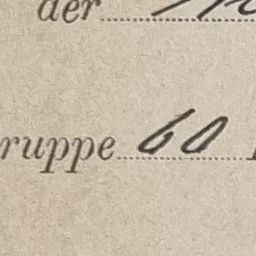 der
ruppe 60